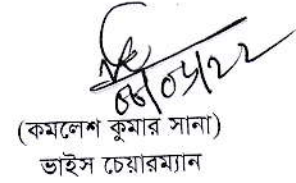 06/05/22
(কমলেশ কুমার সানা)
ভাইস চেয়ারম্যান